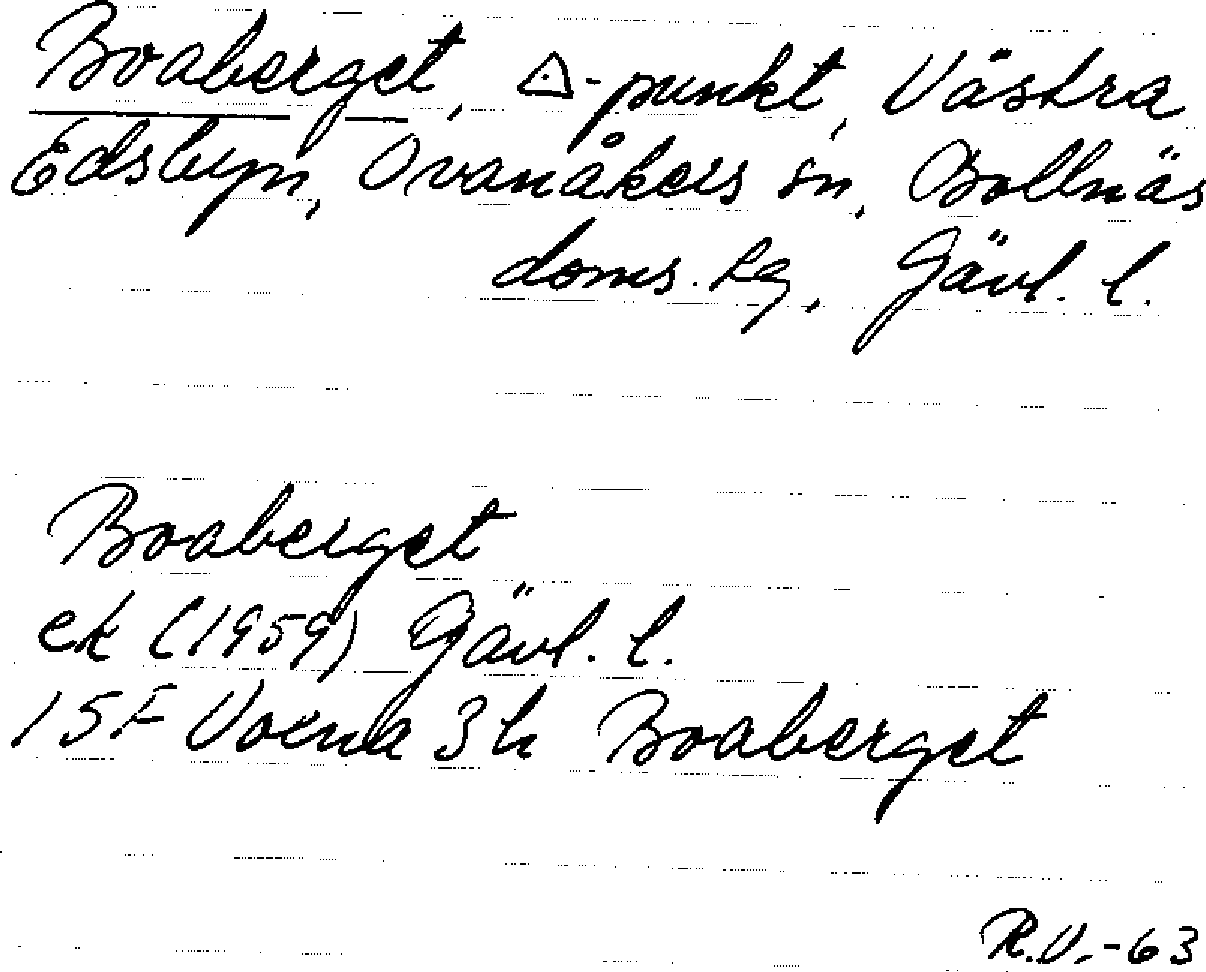 Boaberget, △-punkt, Västra
Edsbyn, Ovanåkers sn, Bollnäs
doms.sg, Gävl. l.
Boaberget
ek (1959) Gävl. l.
15F Voxna 3h Boaberget
R.V.-63